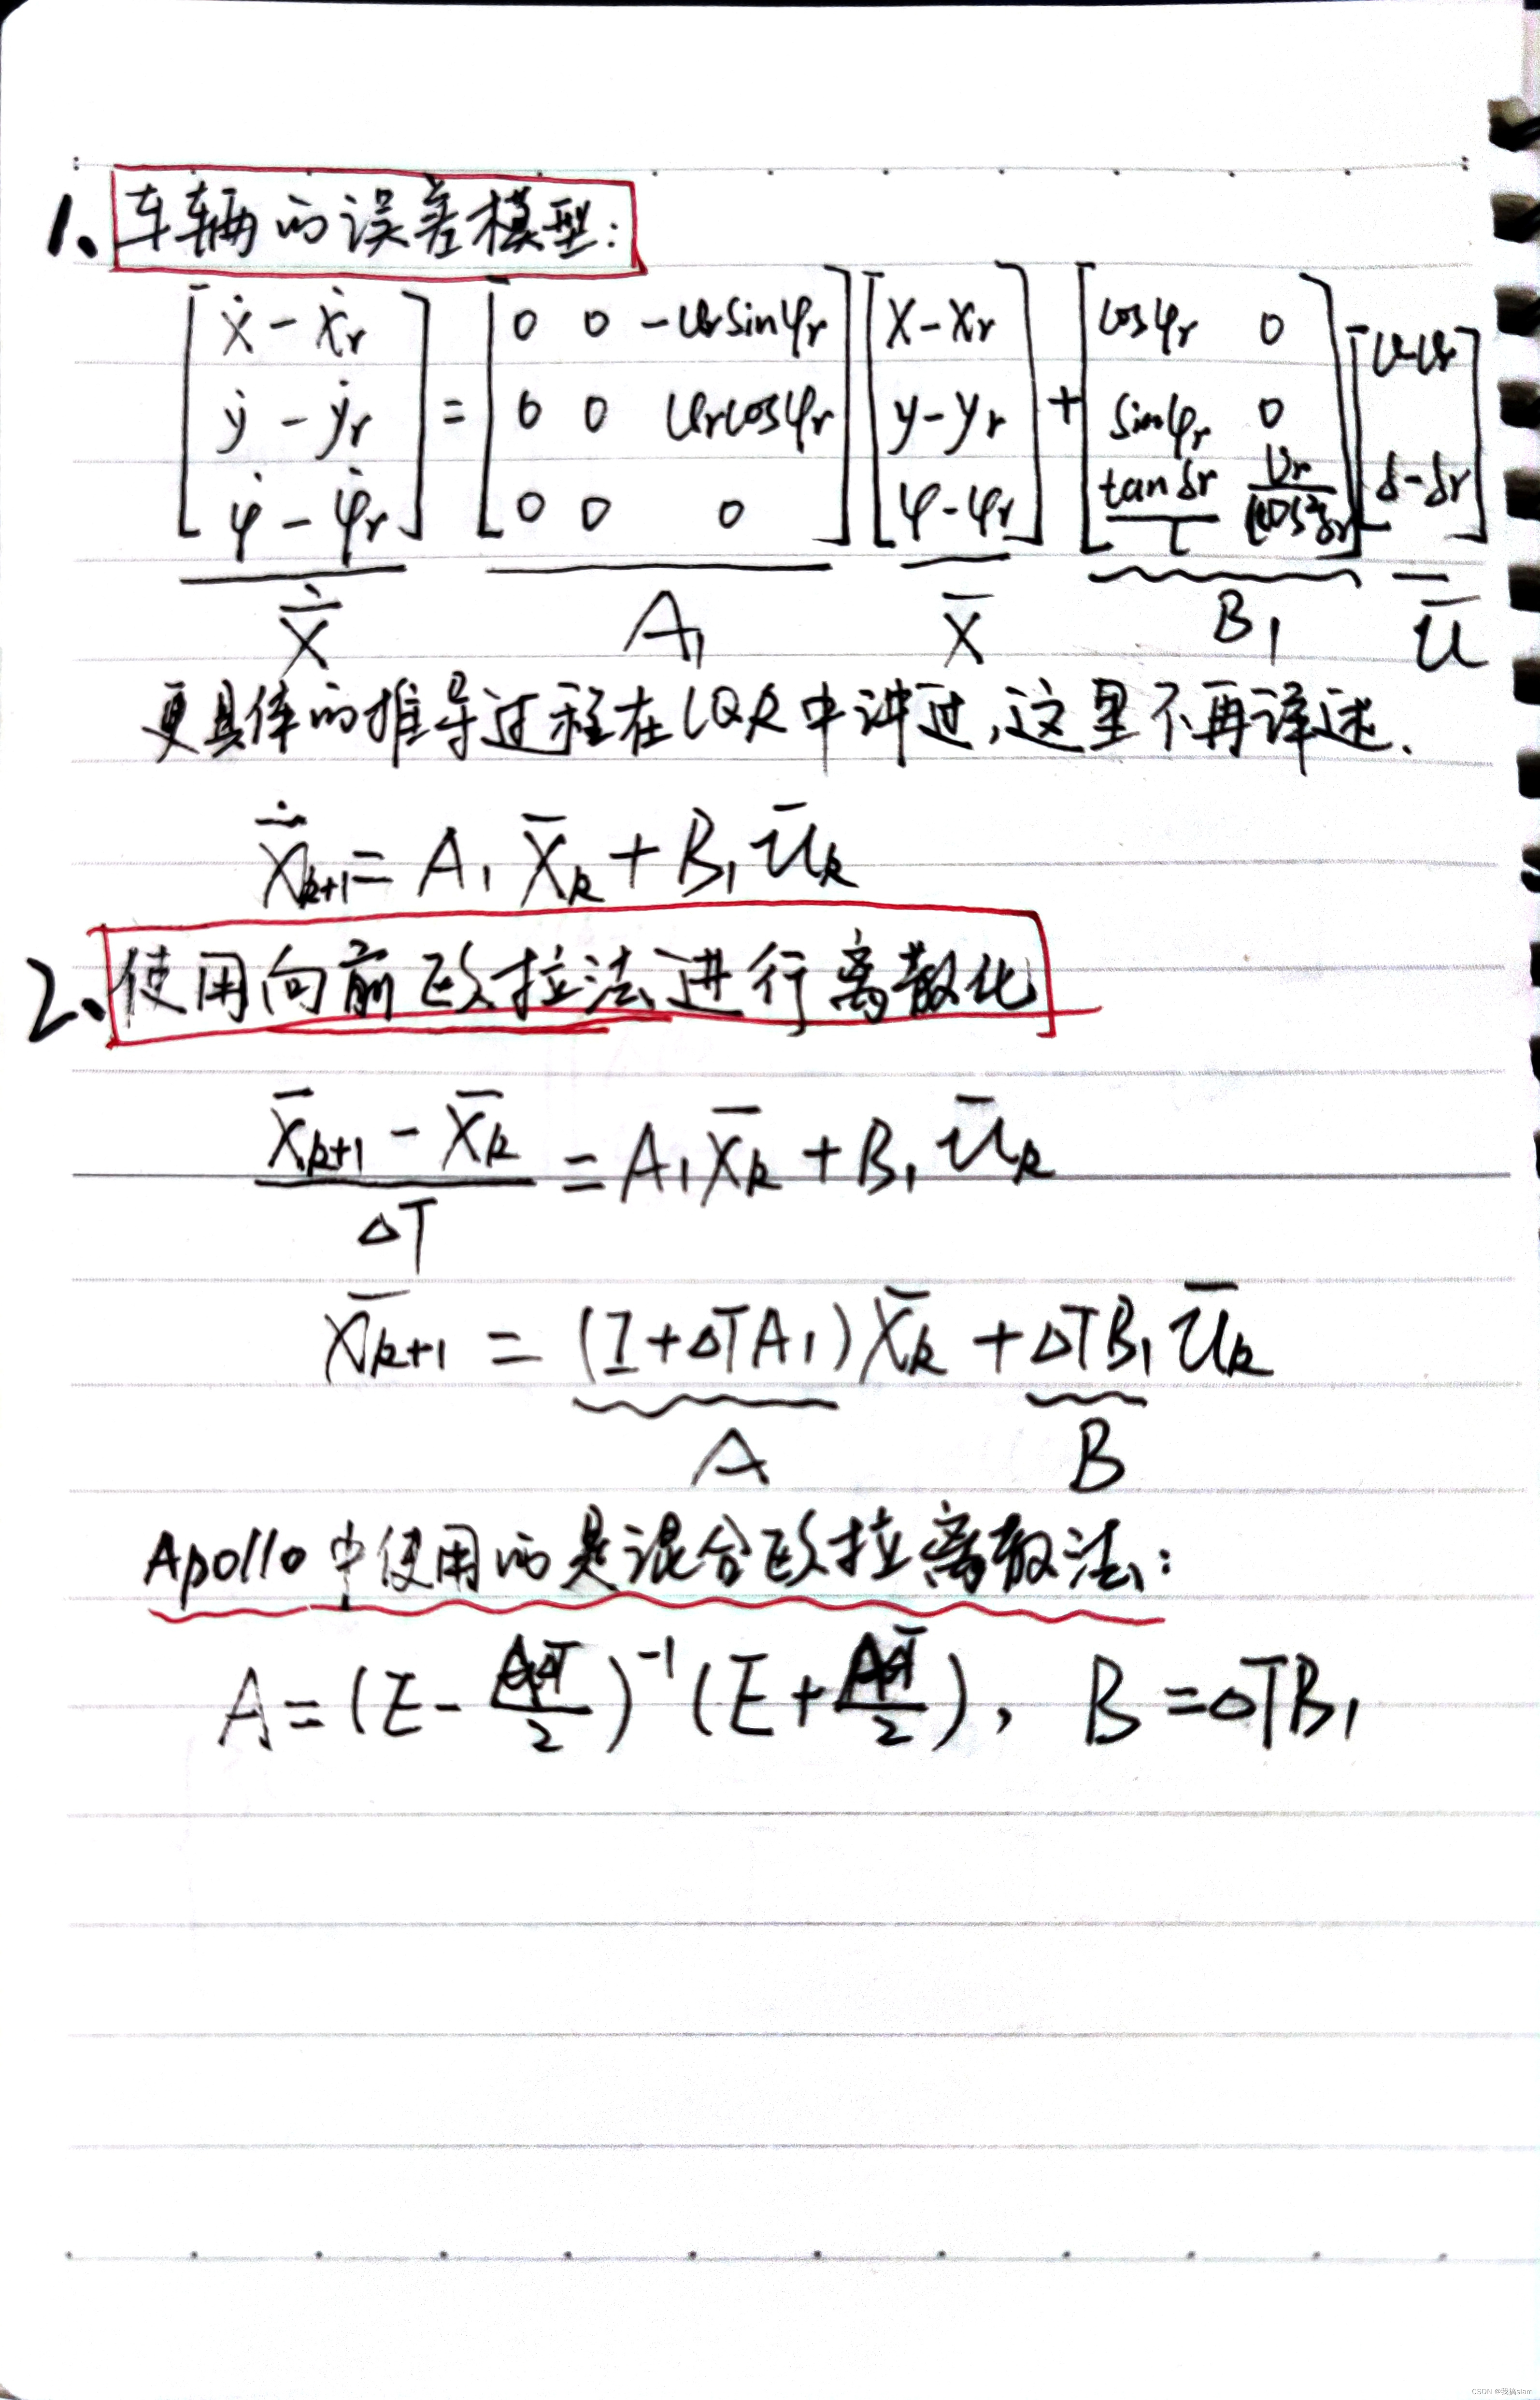 1、车辆的误差模型:
[ẋ - ẋr; ẏ - ẏr; φ̇ - φ̇r] = [0 0 -υr sinφr; 0 0 υr cosφr; 0 0 0] [x - xr; y - yr; φ - φr] + [cosφr 0; sinφr 0; tanδr/L υr/(Lcos²δr)] [υ-υr; δ-δr]
Ẋ̄ A₁ X̄ B₁ ū
更具体的推导过程在LQR中讲过,这里不再详述.
Ẋ̄k+1 = A₁X̄k + B₁ūk
2、使用向前欧拉法进行离散化
(X̄k+1 - X̄k)/ΔT = A₁X̄k + B₁ūk
X̄k+1 = (I+ΔTA₁)X̄k + ΔTB₁ūk
A B
Apollo中使用的是混合欧拉离散法:
A = (E - A₁ΔT/2)⁻¹(E + A₁ΔT/2), B = ΔTB₁
CSDN @我搞slam